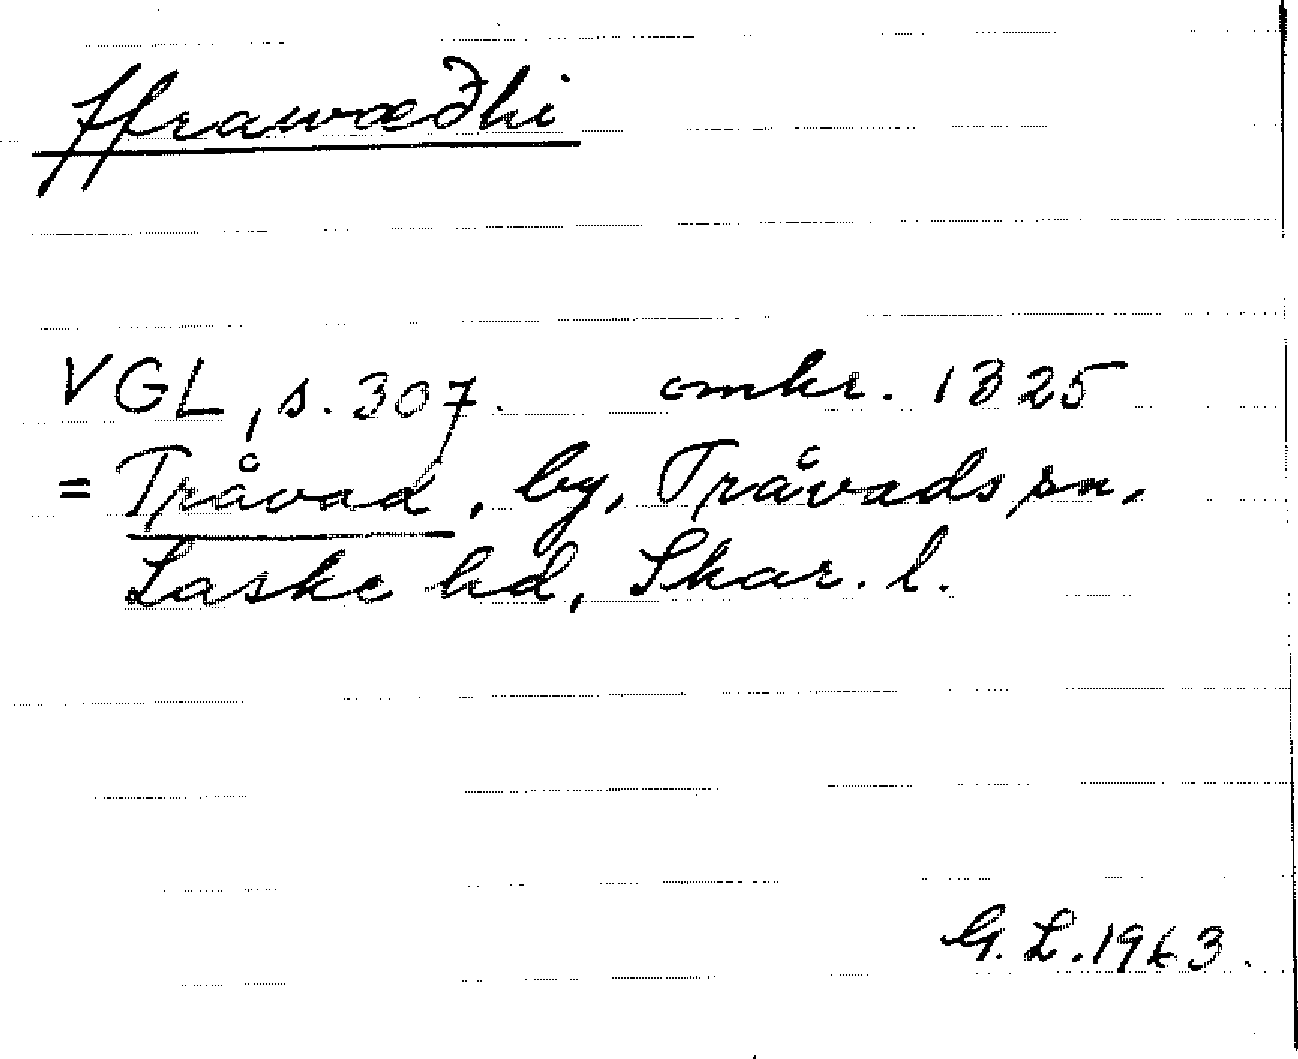 ffrawæðhi
VGL, s. 307. omkr. 1325
= Tråvad, by, Tråvads sn.
Laske hd, Skar. l.
G. L. 1963.